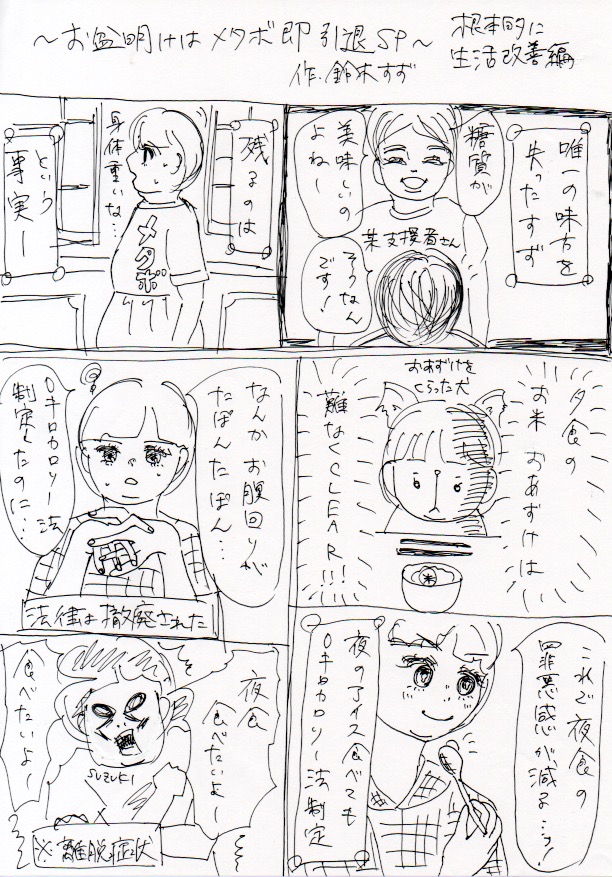 ～お盆明けはメタボ即引退SP～
根本的に
生活改善編
作.鈴木すず
唯一の味方を
失ったすず
糖質が
美味しいの
よねー
某支援者さん
そうなん
です！
残るのは
身体重いな…
メタボ
という
事実ー
夕食の
お米おあずけは
おあずけを
くらった犬
難なくCLEAR!!!
米
なんかお腹回りが
たぽんたぽん…
0キロカロリー法
制定したのに…
法律は撤廃された
これで夜食の
罪悪感が、減る…ッ!
夜のアイス食べても
0キロカロリー法制定
夜食
食べたいよー
食べたいよー
SUZUKI
※離脱症状